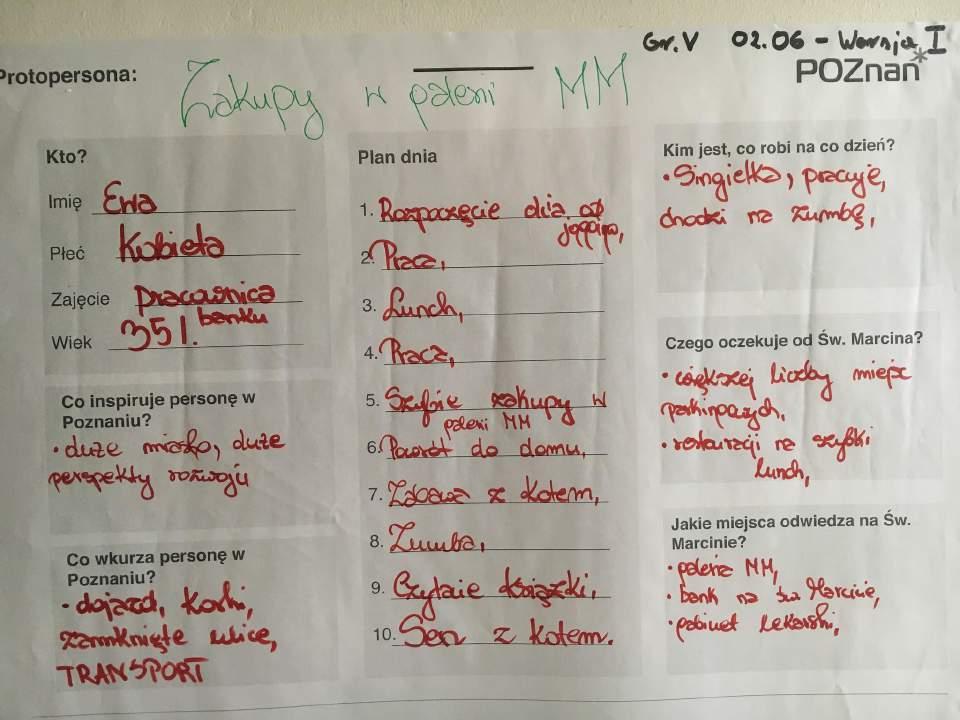 Gr. V 02.06 - Wersja I
POZnan*
Protopersona:
Zakupy w galerii MM
Kto?
Imię Ewa
Płeć Kobieta
Zajęcie Pracownica
banku
Wiek 35 l.
Co inspiruje personę w
Poznaniu?
• duże miasto, duże
perspekty rozwoju
Co wkurza personę w
Poznaniu?
• dojazd, korki,
zamknięte ulice,
TRANSPORT
Plan dnia
1. Rozpoczęcie dnia od
joggingu,
2. Praca,
3. Lunch,
4. Praca,
5. Szybkie zakupy w
galerii MM
6. Powrót do domu,
7. Zabawa z kotem,
8. Zumba,
9. Czytanie książki,
10. Sen z kotem.
Kim jest, co robi na co dzień?
• Singielka, pracuje,
chodzi na zumbę,
Czego oczekuje od Św. Marcina?
• większej liczby miejsc
parkingowych,
• restauracji na szybki
lunch,
Jakie miejsca odwiedza na Św.
Marcinie?
• galeria MM,
• bank na Św Marcinie,
• gabinet lekarski,